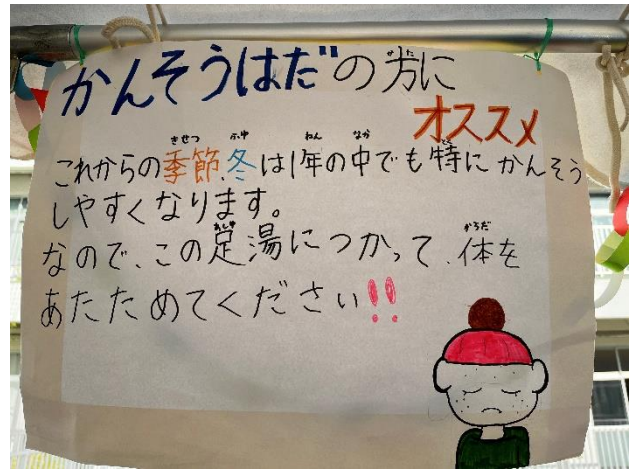 かんそうはだの方に
オススメ
これからの季節、冬は1年の中でも特にかんそう
しやすくなります。
なので、この足湯につかって、体を
あたためてください!!